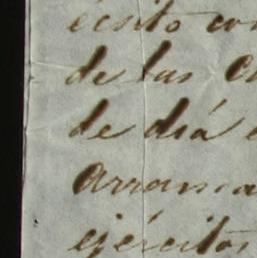 écsito con
de las C
de diá
arrama
ejércitos